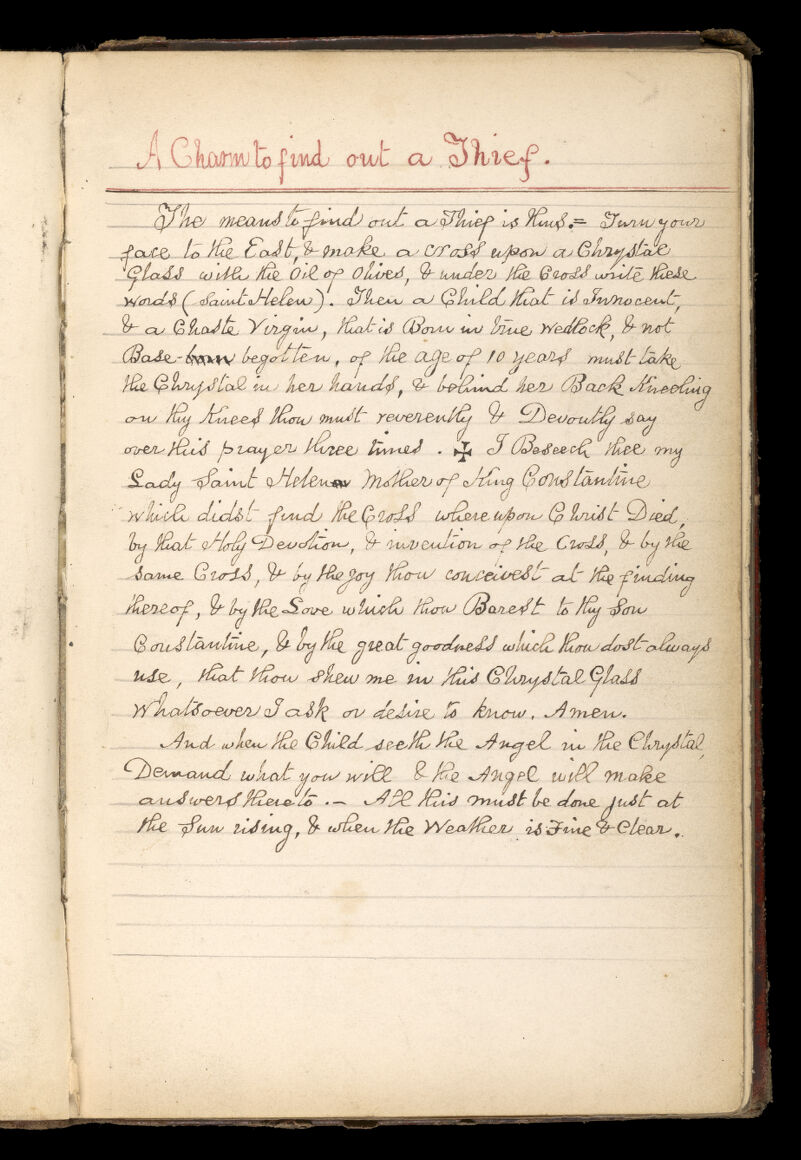 A Charm to find out a Thief.
The means to find out a Thief is thus.= Turn your
face to the East, & make a cross upon a Chrystal
Glass with the Oil of Olives, & under the Cross write these
words (Saint Helen). Then a Child that is Innocent,
& a Chaste Virgin, that is Born in true Wedlock, & not
Base- begotten, of the age of 10 years must take
the Chrystal in her hands, & behind her Back Kneeling
on thy Knees thou must reverently & Devoutly say
over this prayer three times. ✠ I Beseech thee my
Lady Saint Helen Mother of King Constantine
which didst find the Cross whereupon Christ Died,
by that Holy Devotion, & invention of the Cross, & by the
same Cross, & by the joy thou conceivest at the finding
thereof, & by the Love which thou Barest to thy Son
Constantine, & by the great goodness which thou dost always
use, that thou shew me in this Chrystal Glass
Whatsoever I ask or desire to know. Amen.
And when the Child seeth the Angel in the Chrystal,
Demand what you will & the Angel will make
answers thereto .- All this must be done just at
the Sun rising, & when the Weather is Fine & Clear.